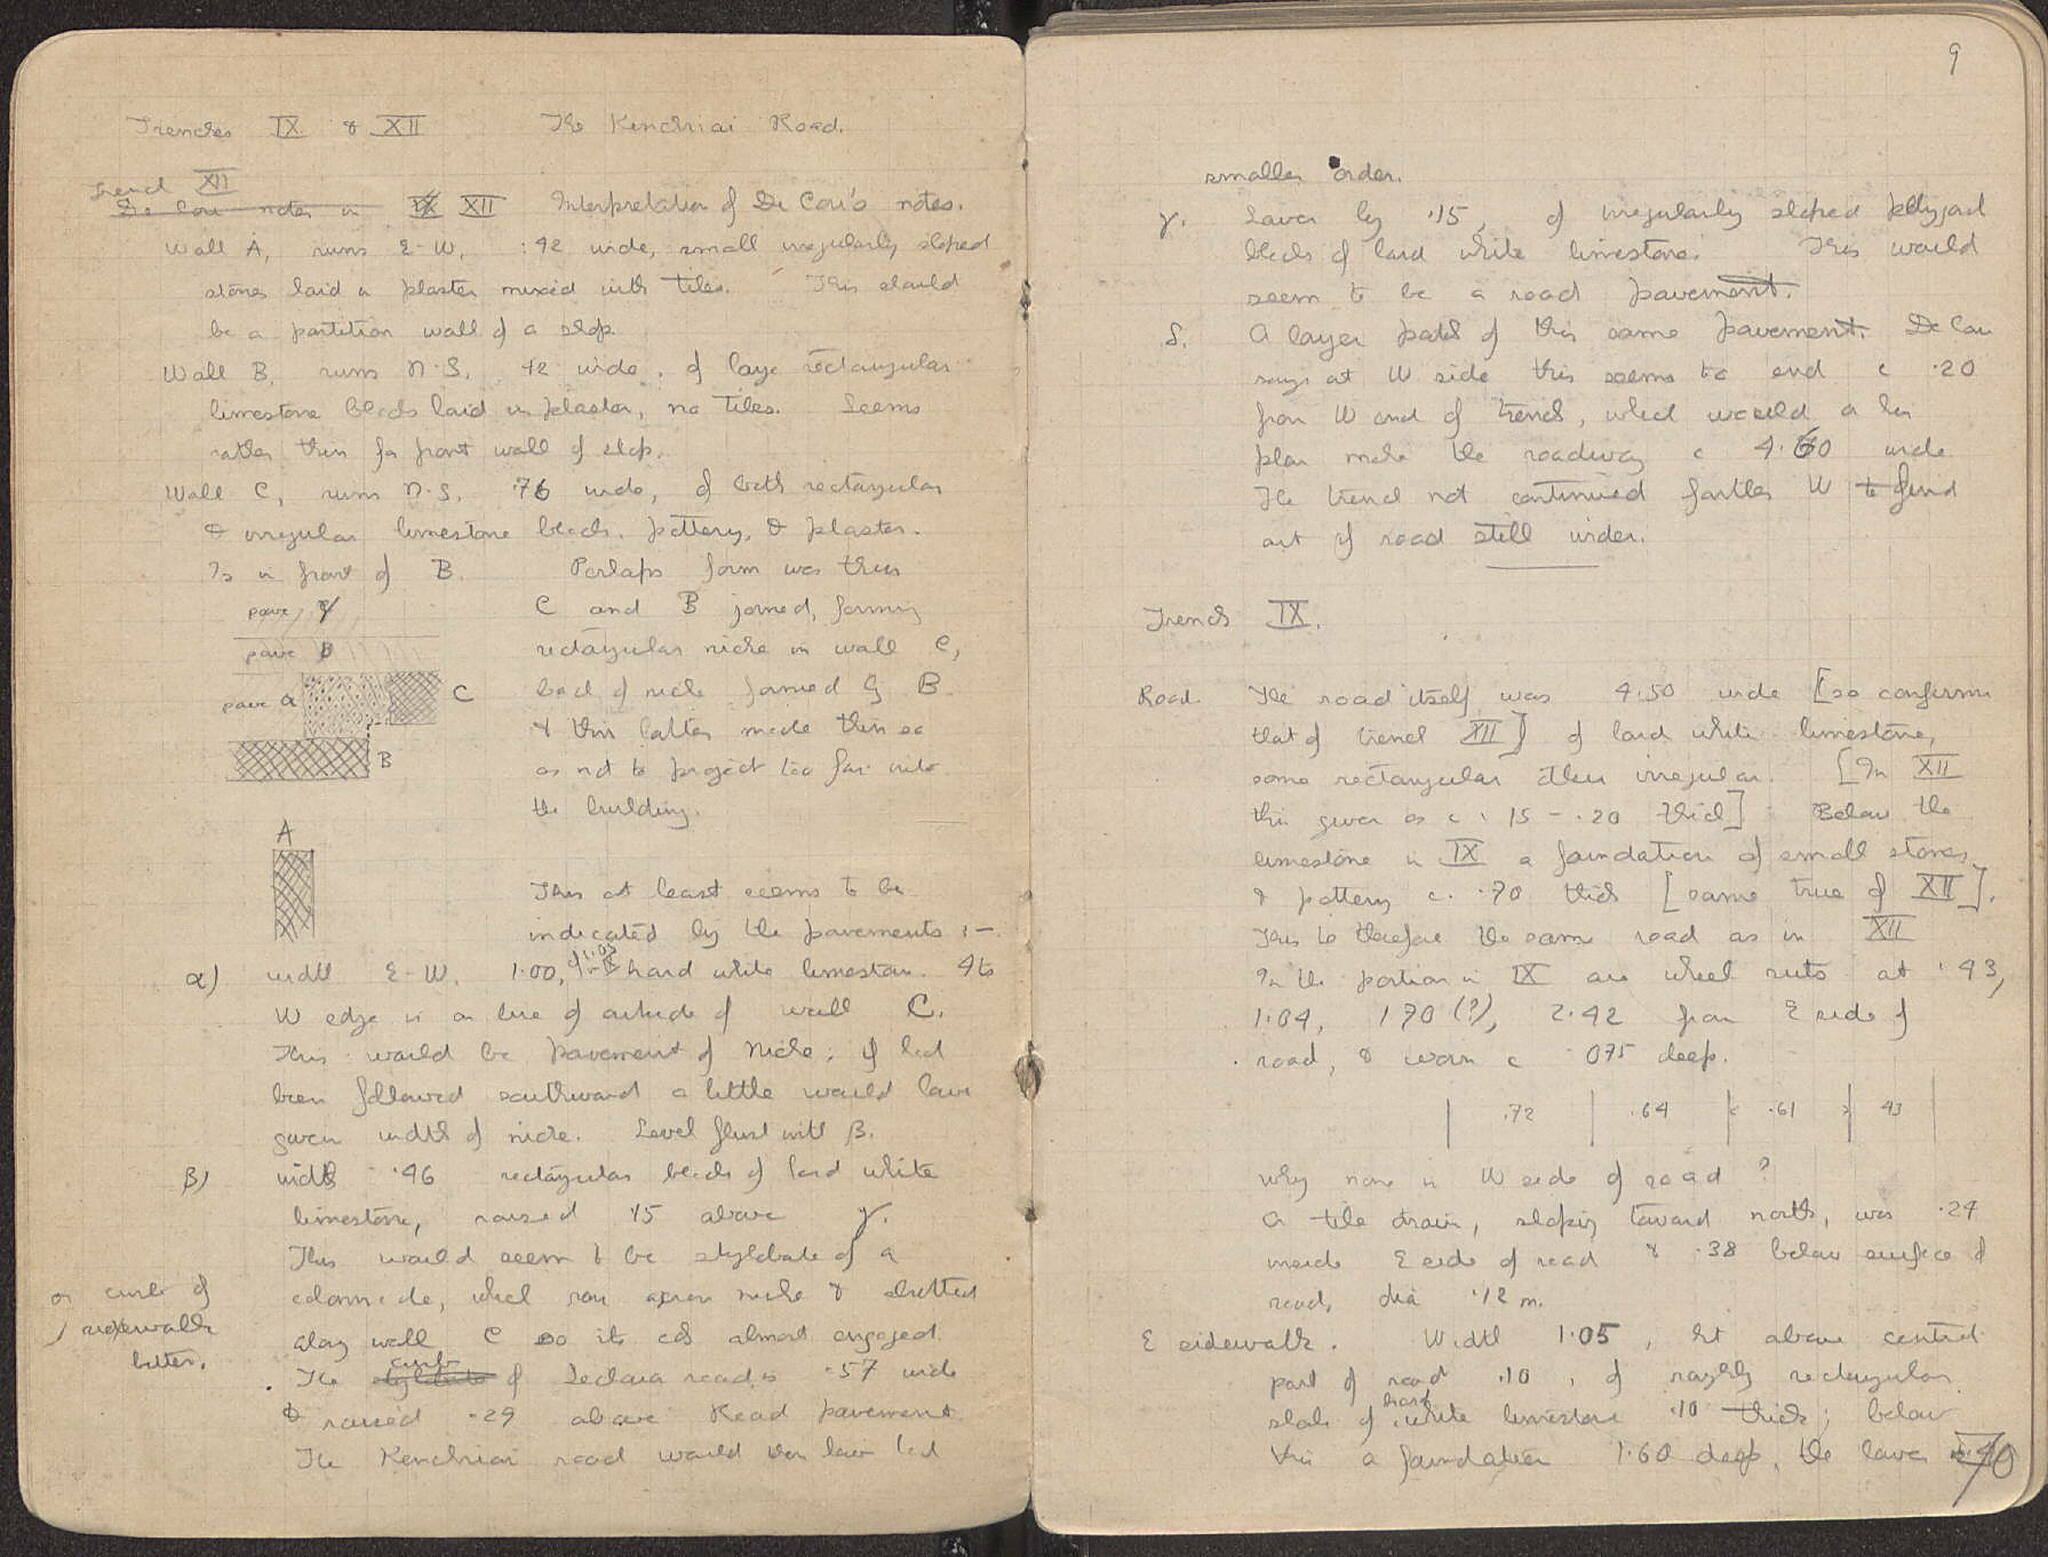 Trenches IX & XII The Kenchriai Road.
Trench XII
De Cou notes in IX XII Interpretation of De Cou's notes.
Wall A, runs E-W, .42 wide, small irregularly shaped
stones laid in plaster mixed with tiles. This should
be a partition wall of a shop.
Wall B, runs N-S, .42 wide, of large rectangular
limestone blocks laid in plaster, no tiles. Seems
rather thin for front wall of shop.
Wall C, runs N-S, .76 wide, of both rectangular
& irregular limestone blocks, pottery, & plaster.
Is in front of B. Perhaps form was thus
pave γ
pave β
pave α
C
B
A
C and B joined, forming
rectangular niche in wall C,
back of niche formed by B
& this latter made thin so
as not to project too far into
the building.
This at least seems to be
indicated by the pavements :-
α) width E-W. 1.00, hard white limestone. Its
W edge is on line of outside of wall C.
This would be pavement of niche; if had
been followed southward a little would have
given width of niche. Level flush with β.
β) width .46 rectangular blocks of hard white
limestone, raised .15 above γ.
This would seem to be stylobate of a
colonnade, which ran across niche & abutted
along wall C so its cols almost engaged.
or curb of
sidewalk
better.
curb
The stylobate of Lechaion road is .57 wide
& raised .29 above Road pavement.
The Kenchriai road would then have had
9
smaller order.
γ. Lower by .15, of irregularly shaped polygonal
blocks of hard white limestone. This would
seem to be a road pavement.
δ. A larger patch of this same pavement. De Cou
says at W side this seems to end c .20
from W end of trench, which would on his
plan make the roadway c 4.60 wide
The trench not continued farther W to find
out if road still wider.
Trench IX.
Road. The road itself was 4.50 wide [so confirms
that of trench XII] of hard white limestone,
some rectangular others irregular. [In XII
this given as c .15 - .20 thick] Below the
limestone in IX a foundation of small stones
& pottery c. .70 thick [same true of XII].
This is therefore the same road as in XII
In the portion in IX are wheel ruts at .43,
1.04, 1.70 (?), 2.42 from E side of
road, & worn c .075 deep.
.72 .64 .61 43
Why none in W side of road?
A tile drain, sloping toward north, was .24
inside E side of road & .38 below surface of
road, dia .12 m.
E sidewalk. Width 1.05, ht above central
part of road .10, of roughly rectangular
slabs of hard white limestone .10 thick; below
this a foundation 1.60 deep, the lower .70